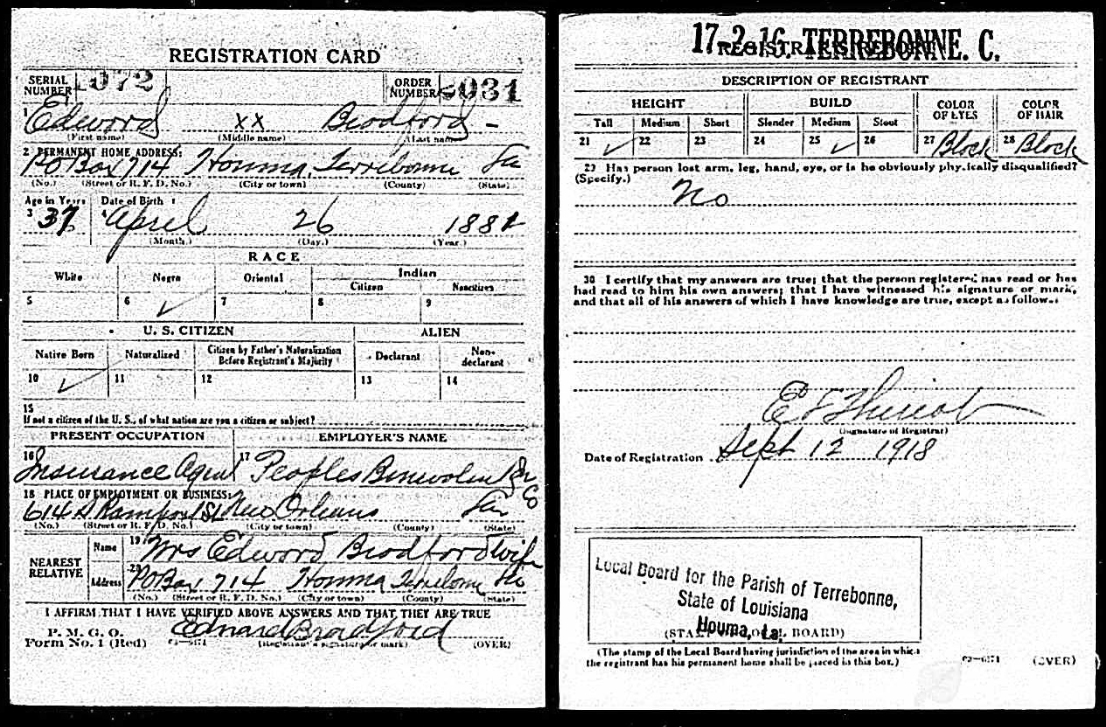 REGISTRATION CARD
SERIAL NUMBER 972
ORDER NUMBER 031
1 Edword xx Bradford -
(First name) (Middle name) (Last name)
2 PERMANENT HOME ADDRESS:
PO Box 714 Houma Terrebonne La
(No.) (Street or R. F. D. No.) (City or town) (County) (State)
Age in Years Date of Birth
3 37 4 April 26 1881
(Month.) (Day.) (Year.)
RACE
White Negro Oriental Indian
Citizen Noncitizen
5 6 ✓ 7 8 9
U. S. CITIZEN ALIEN
Native Born Naturalized Citizen by Father's Naturalization Before Registrant's Majority Declarant Non-declarant
10 ✓ 11 12 13 14
15
If not a citizen of the U. S., of what nation are you a citizen or subject?
PRESENT OCCUPATION EMPLOYER'S NAME
16 Insurance Agent 17 Peoples Benevolen Co
18 PLACE OF EMPLOYMENT OR BUSINESS:
614 S Rampart St New Orleans La
(No.) (Street or R. F. D. No.) (City or town) (County) (State)
NEAREST RELATIVE
Name 19 Mrs Edword Bradford wife
Address 20 PO Box 714 Houma Terrebonne La
(No.) (Street or R. F. D. No.) (City or town) (County) (State)
I AFFIRM THAT I HAVE VERIFIED ABOVE ANSWERS AND THAT THEY ARE TRUE
P. M. G. O.
Form No. 1 (Red) 03—6171 Edward Bradford
(Registrant's signature or mark) (OVER)
17-2-16. TERREBONNE. C.
REGISTRAR'S REPORT
DESCRIPTION OF REGISTRANT
HEIGHT BUILD COLOR OF EYES COLOR OF HAIR
Tall Medium Short Slender Medium Stout
21 ✓ 22 23 24 25 ✓ 26 27 Black 28 Black
29 Has person lost arm, leg, hand, eye, or is he obviously physically disqualified?
(Specify.)
No
30 I certify that my answers are true; that the person registered has read or has
had read to him his own answers; that I have witnessed his signature or mark,
and that all of his answers of which I have knowledge are true, except as follows:
E Theriot
(Signature of Registrar)
Date of Registration Sept 12 1918
Local Board for the Parish of Terrebonne,
State of Louisiana
Houma, La.
(STAMP OF LOCAL BOARD)
(The stamp of the Local Board having jurisdiction of the area in which
the registrant has his permanent home shall be placed in this box.)
03—6171 (OVER)